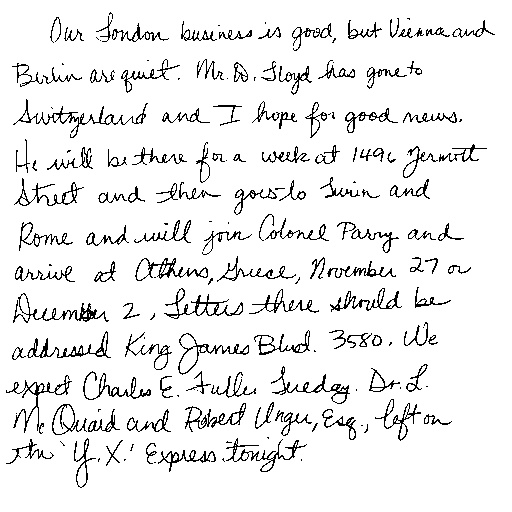 Our London business is good, but Vienna and
Berlin are quiet. Mr. D. Lloyd has gone to
Switzerland and I hope for good news.
He will be there for a week at 1496 Zermott
Street and then goes to Turin and
Rome and will join Colonel Parry and
arrive at Athens, Greece, November 27 or
December 2. Letters there should be
addressed King James Blvd. 3580. We
expect Charles E. Fuller Tuesday. Dr. L.
McQuaid and Robert Unger, Esq., left on
the 'Y.X.' Express tonight.